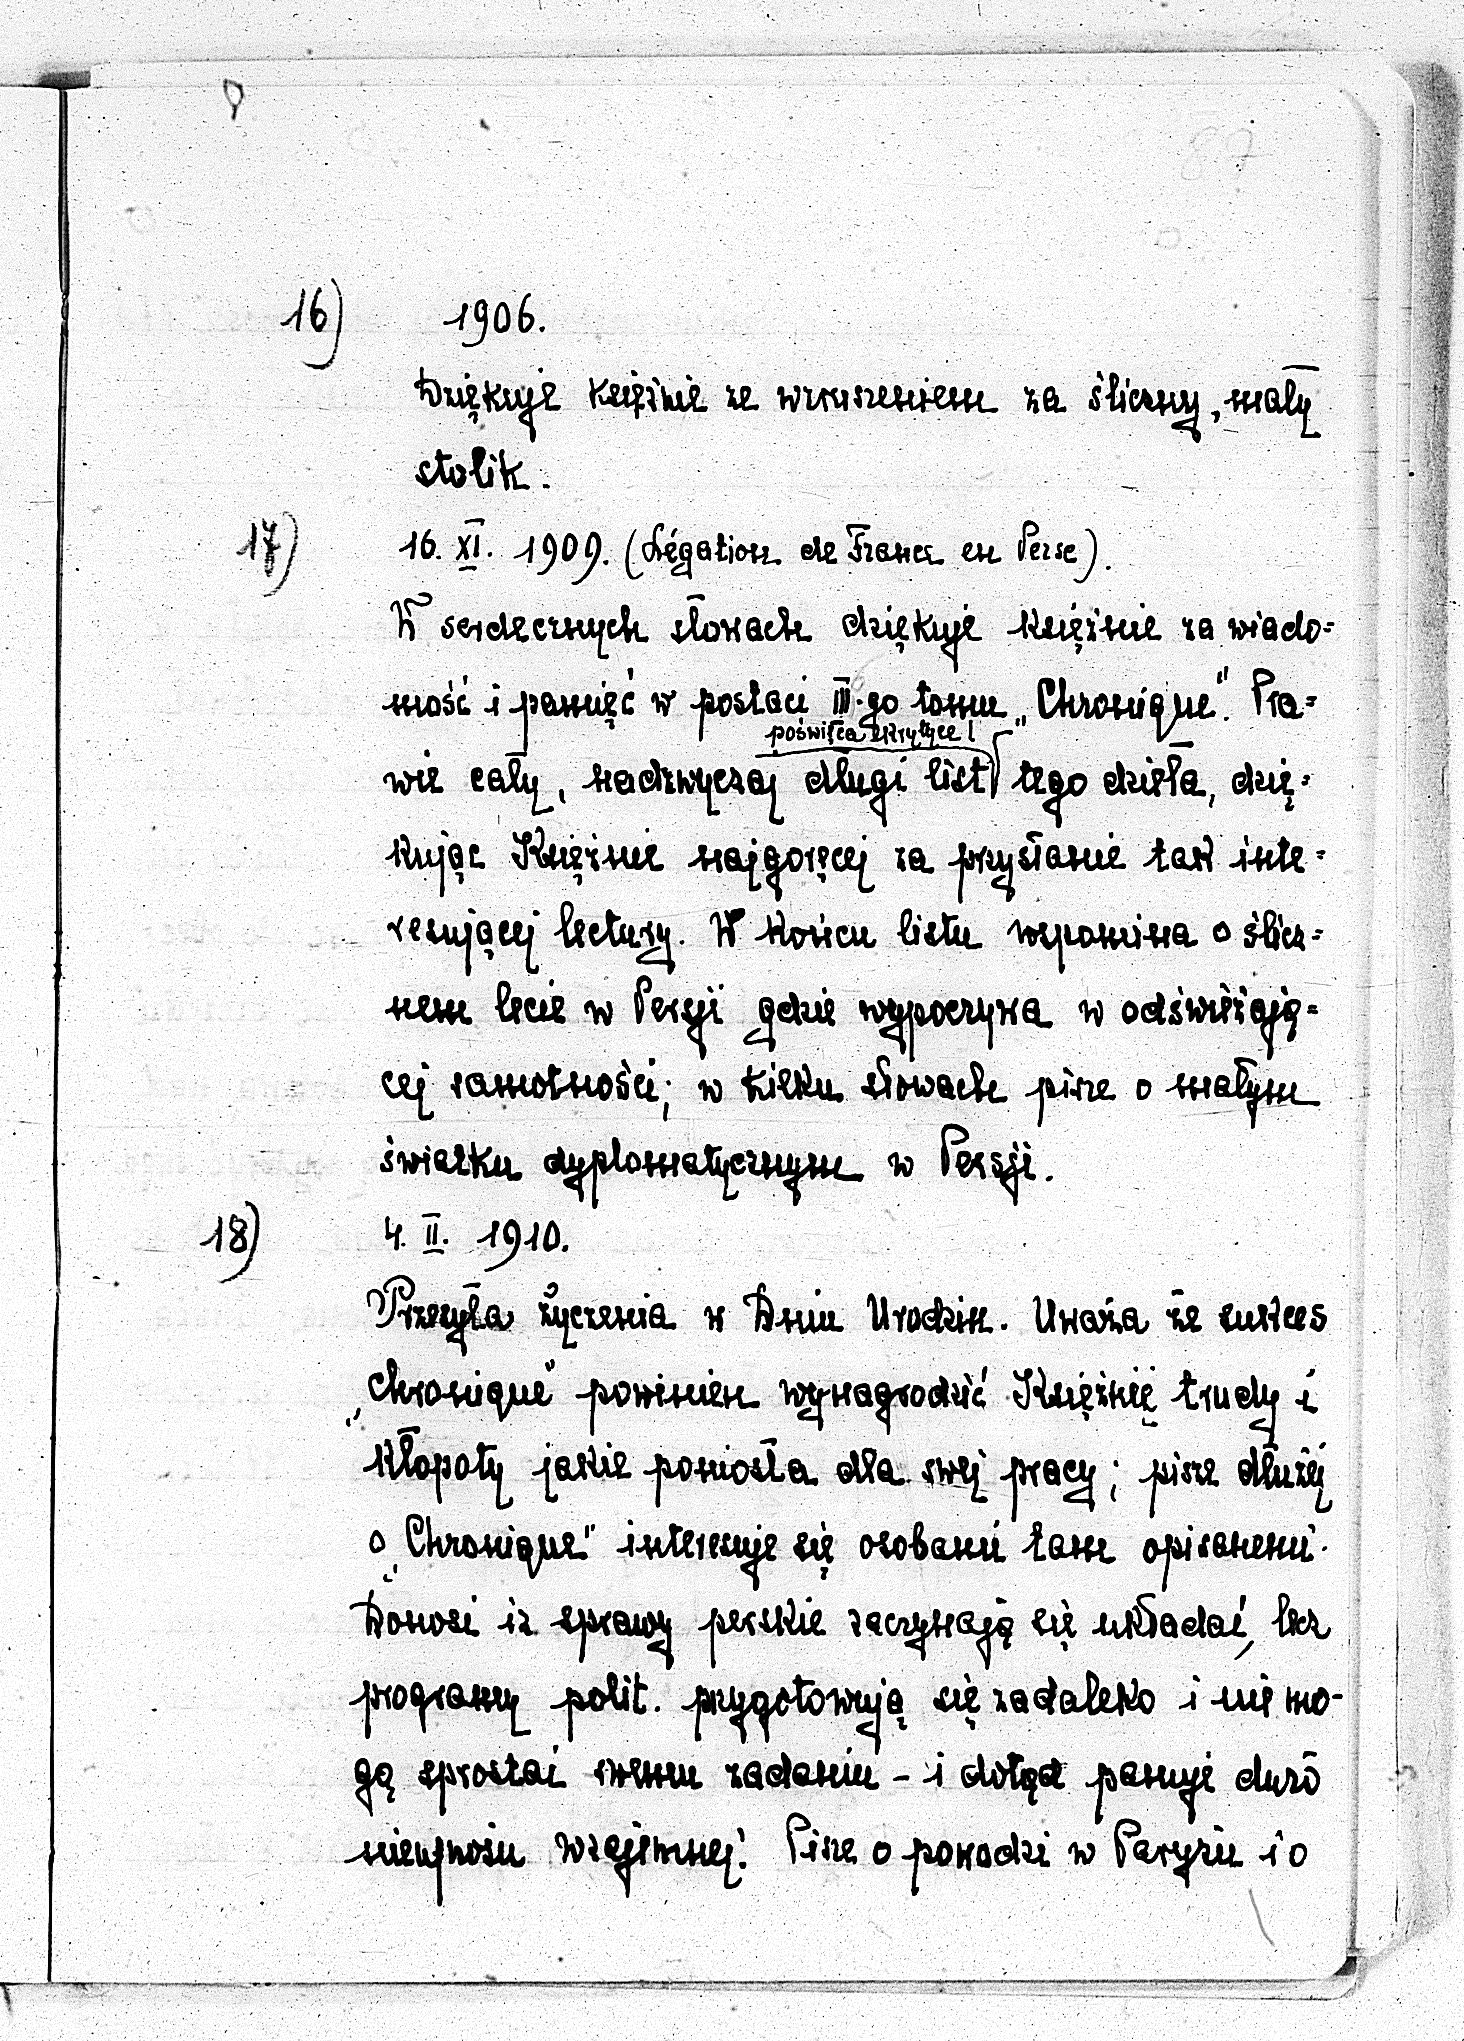 16) 1906.
Dziękuje księżnie ze wzruszeniem za śliczny, mały
stolik.
17) 16. XI. 1909. (Légation de France en Perse).
W serdecznych słowach dziękuje księżnie za wiado=
mość i pamięć w postaci III-go tomu „Chronique". Pra=
poświęca krytyce
wie cały, nadzwyczaj długi list tego dzieła, dzię=
kując Księżnie najgoręcej za przysłanie tak inte=
resującej lectury. W końcu listu wspomina o ślicz=
nem lecie w Persji gdzie wypoczywa w odświeżają=
cej samotności; w kilku słowach pisze o małym
światku dyplomatycznym w Persji.
18) 4. II. 1910.
Przesyła życzenia w Dniu Urodzin. Uważa że sukces
„Chronique" powinien wynagrodzić Księżnię trudy i
kłopoty jakie poniosła dla swej pracy; pisze dłużej
o „Chronique" interesuje się osobami tam opisanemi.
Donosi iż sprawy perskie zaczynają się układać, lecz
programy polit. przygotowują się zadaleko i nie mo-
gą sprostać swemu zadaniu - i dotąd panuje dużo
nieufności wzajemnej. Pisze o powodzi w Paryżu i o